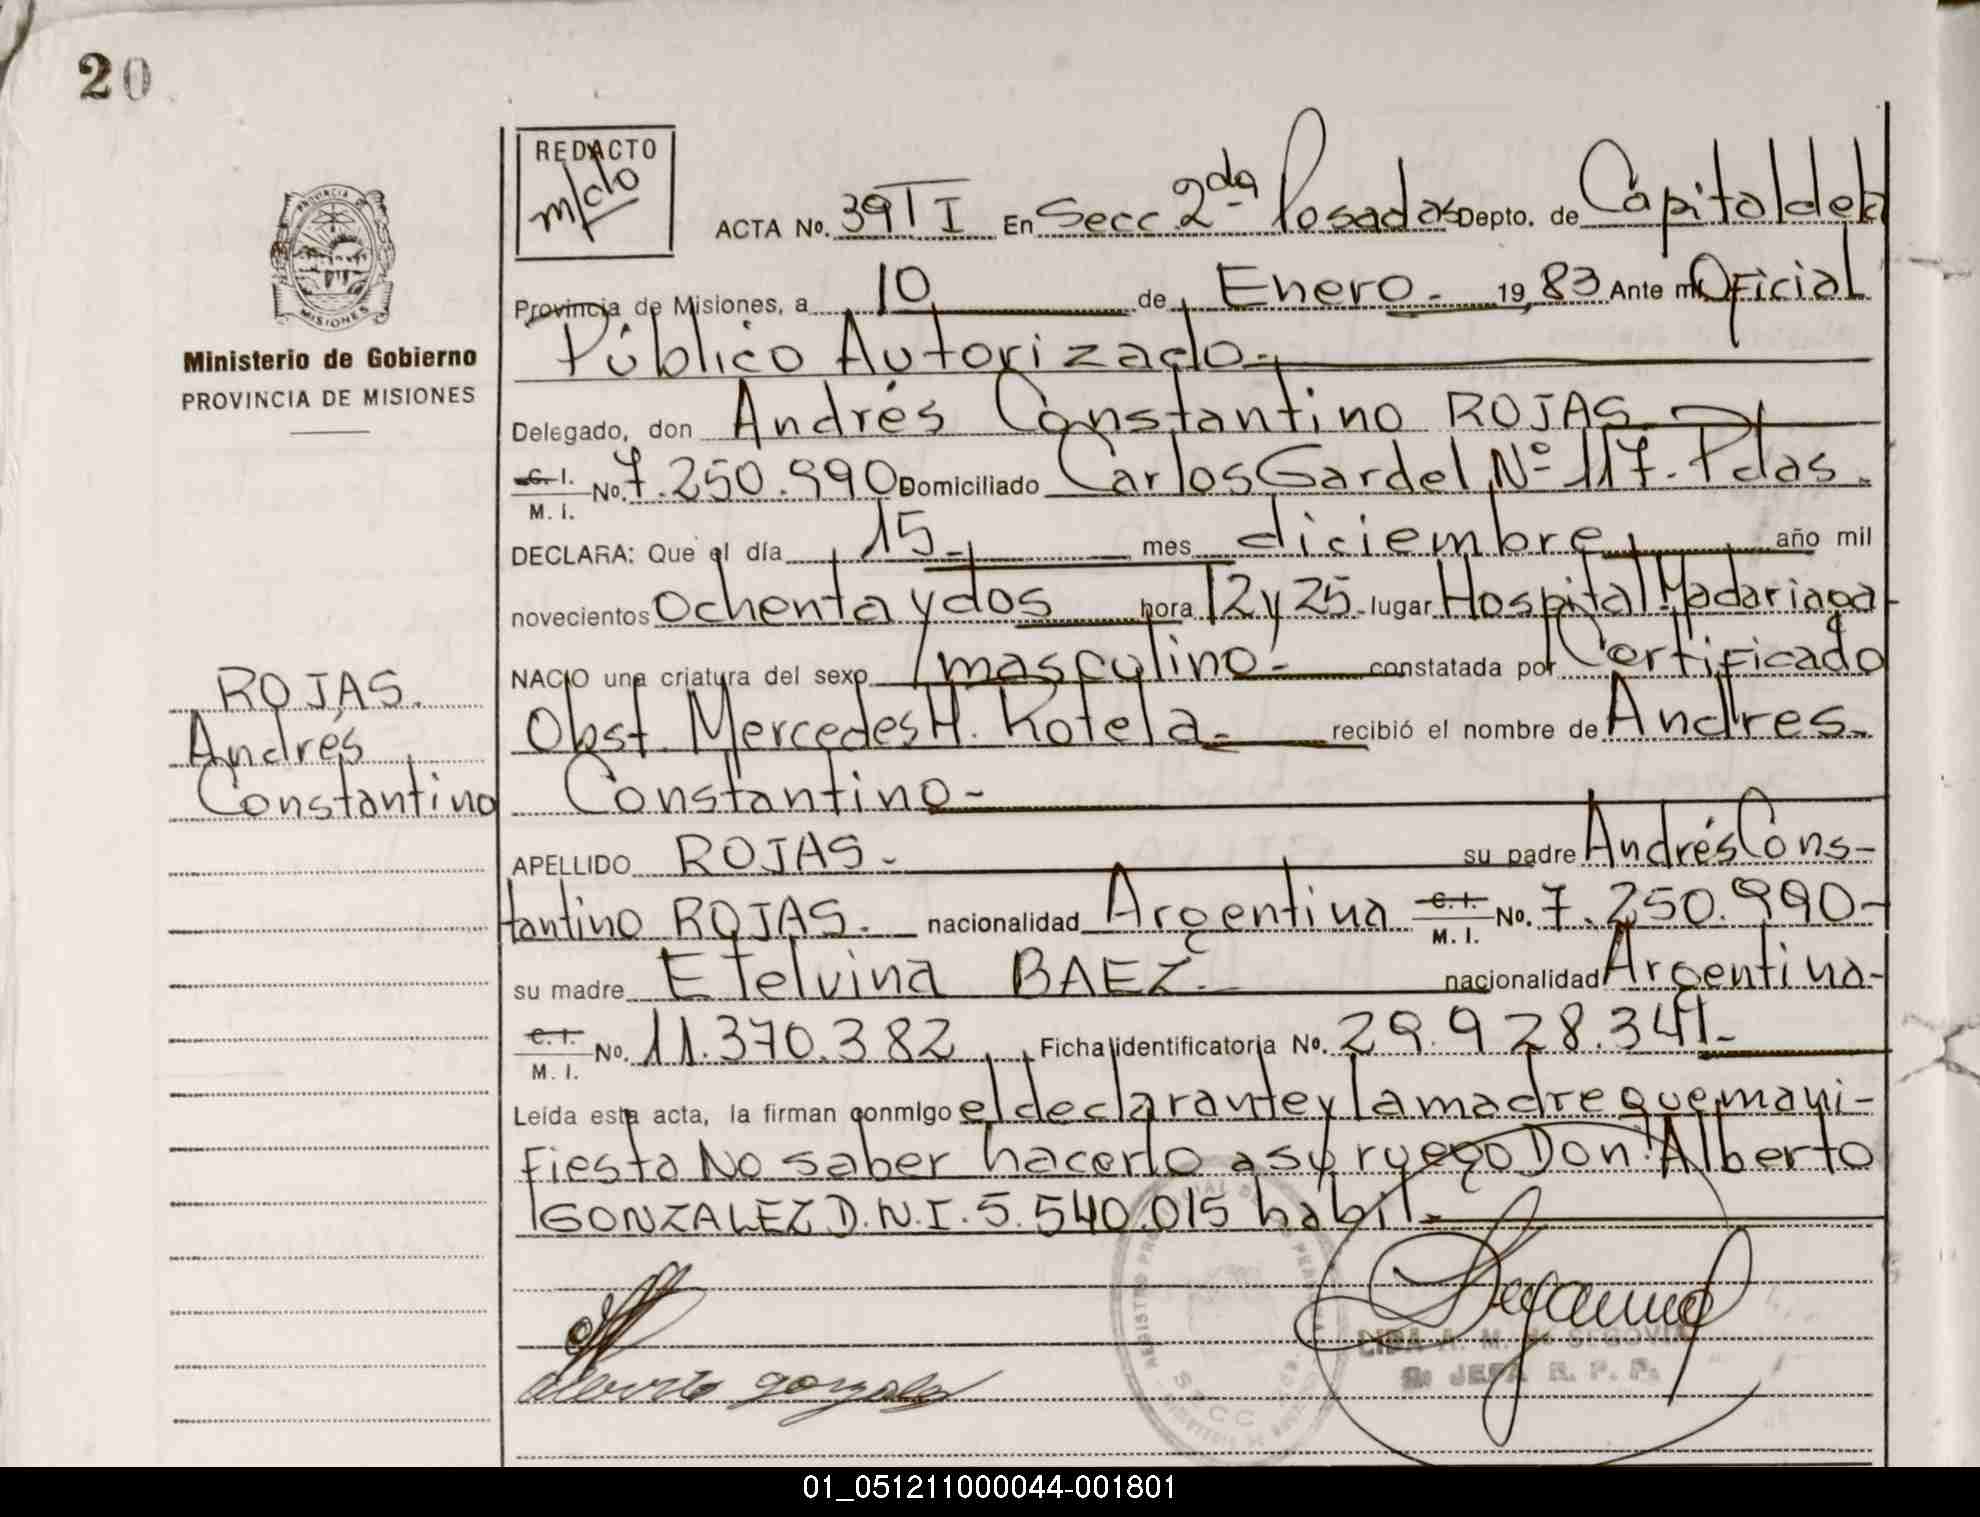 20
REDACTO
ACTA No. 39 T I En Secc 2da Posadas Depto. de Capital de la
Provincia de Misiones, a 10 de Enero - 1983 Ante mi Oficial
Público Autorizado -
Ministerio de Gobierno
PROVINCIA DE MISIONES
Delegado, don Andrés Constantino ROJAS
C. I. M. I. No. 7.250.990 Domiciliado Carlos Gardel Nº 117. Pdas.
DECLARA: Que el día 15 - mes diciembre año mil
novecientos ochenta y dos hora 12 y 25 - lugar Hospital Madariaga
NACIO una criatura del sexo masculino - constatada por Certificado
Obst. Mercedes H. Kotela - recibió el nombre de Andres
Constantino -
ROJAS.
Andrés
Constantino
APELLIDO ROJAS - su padre Andrés Cons-
tantino ROJAS. nacionalidad Argentina C. I. M. I. No. 7.250.990 -
su madre Etelvina BAEZ - nacionalidad Argentina -
C. I. M. I. No. 11.370.382 Ficha identificatoria No. 29.928.341 -
Leída esta acta, la firman conmigo el declarante y la madre que mani-
fiesta No saber hacerlo a su ruego Don Alberto
GONZALEZ D.N.I. 5.540.015 habil -
Alberto gonzalez
LIDA A. M. de SEGOVIA
JEFA R. P. P.
MISIONES
SECC
01_051211000044-001801